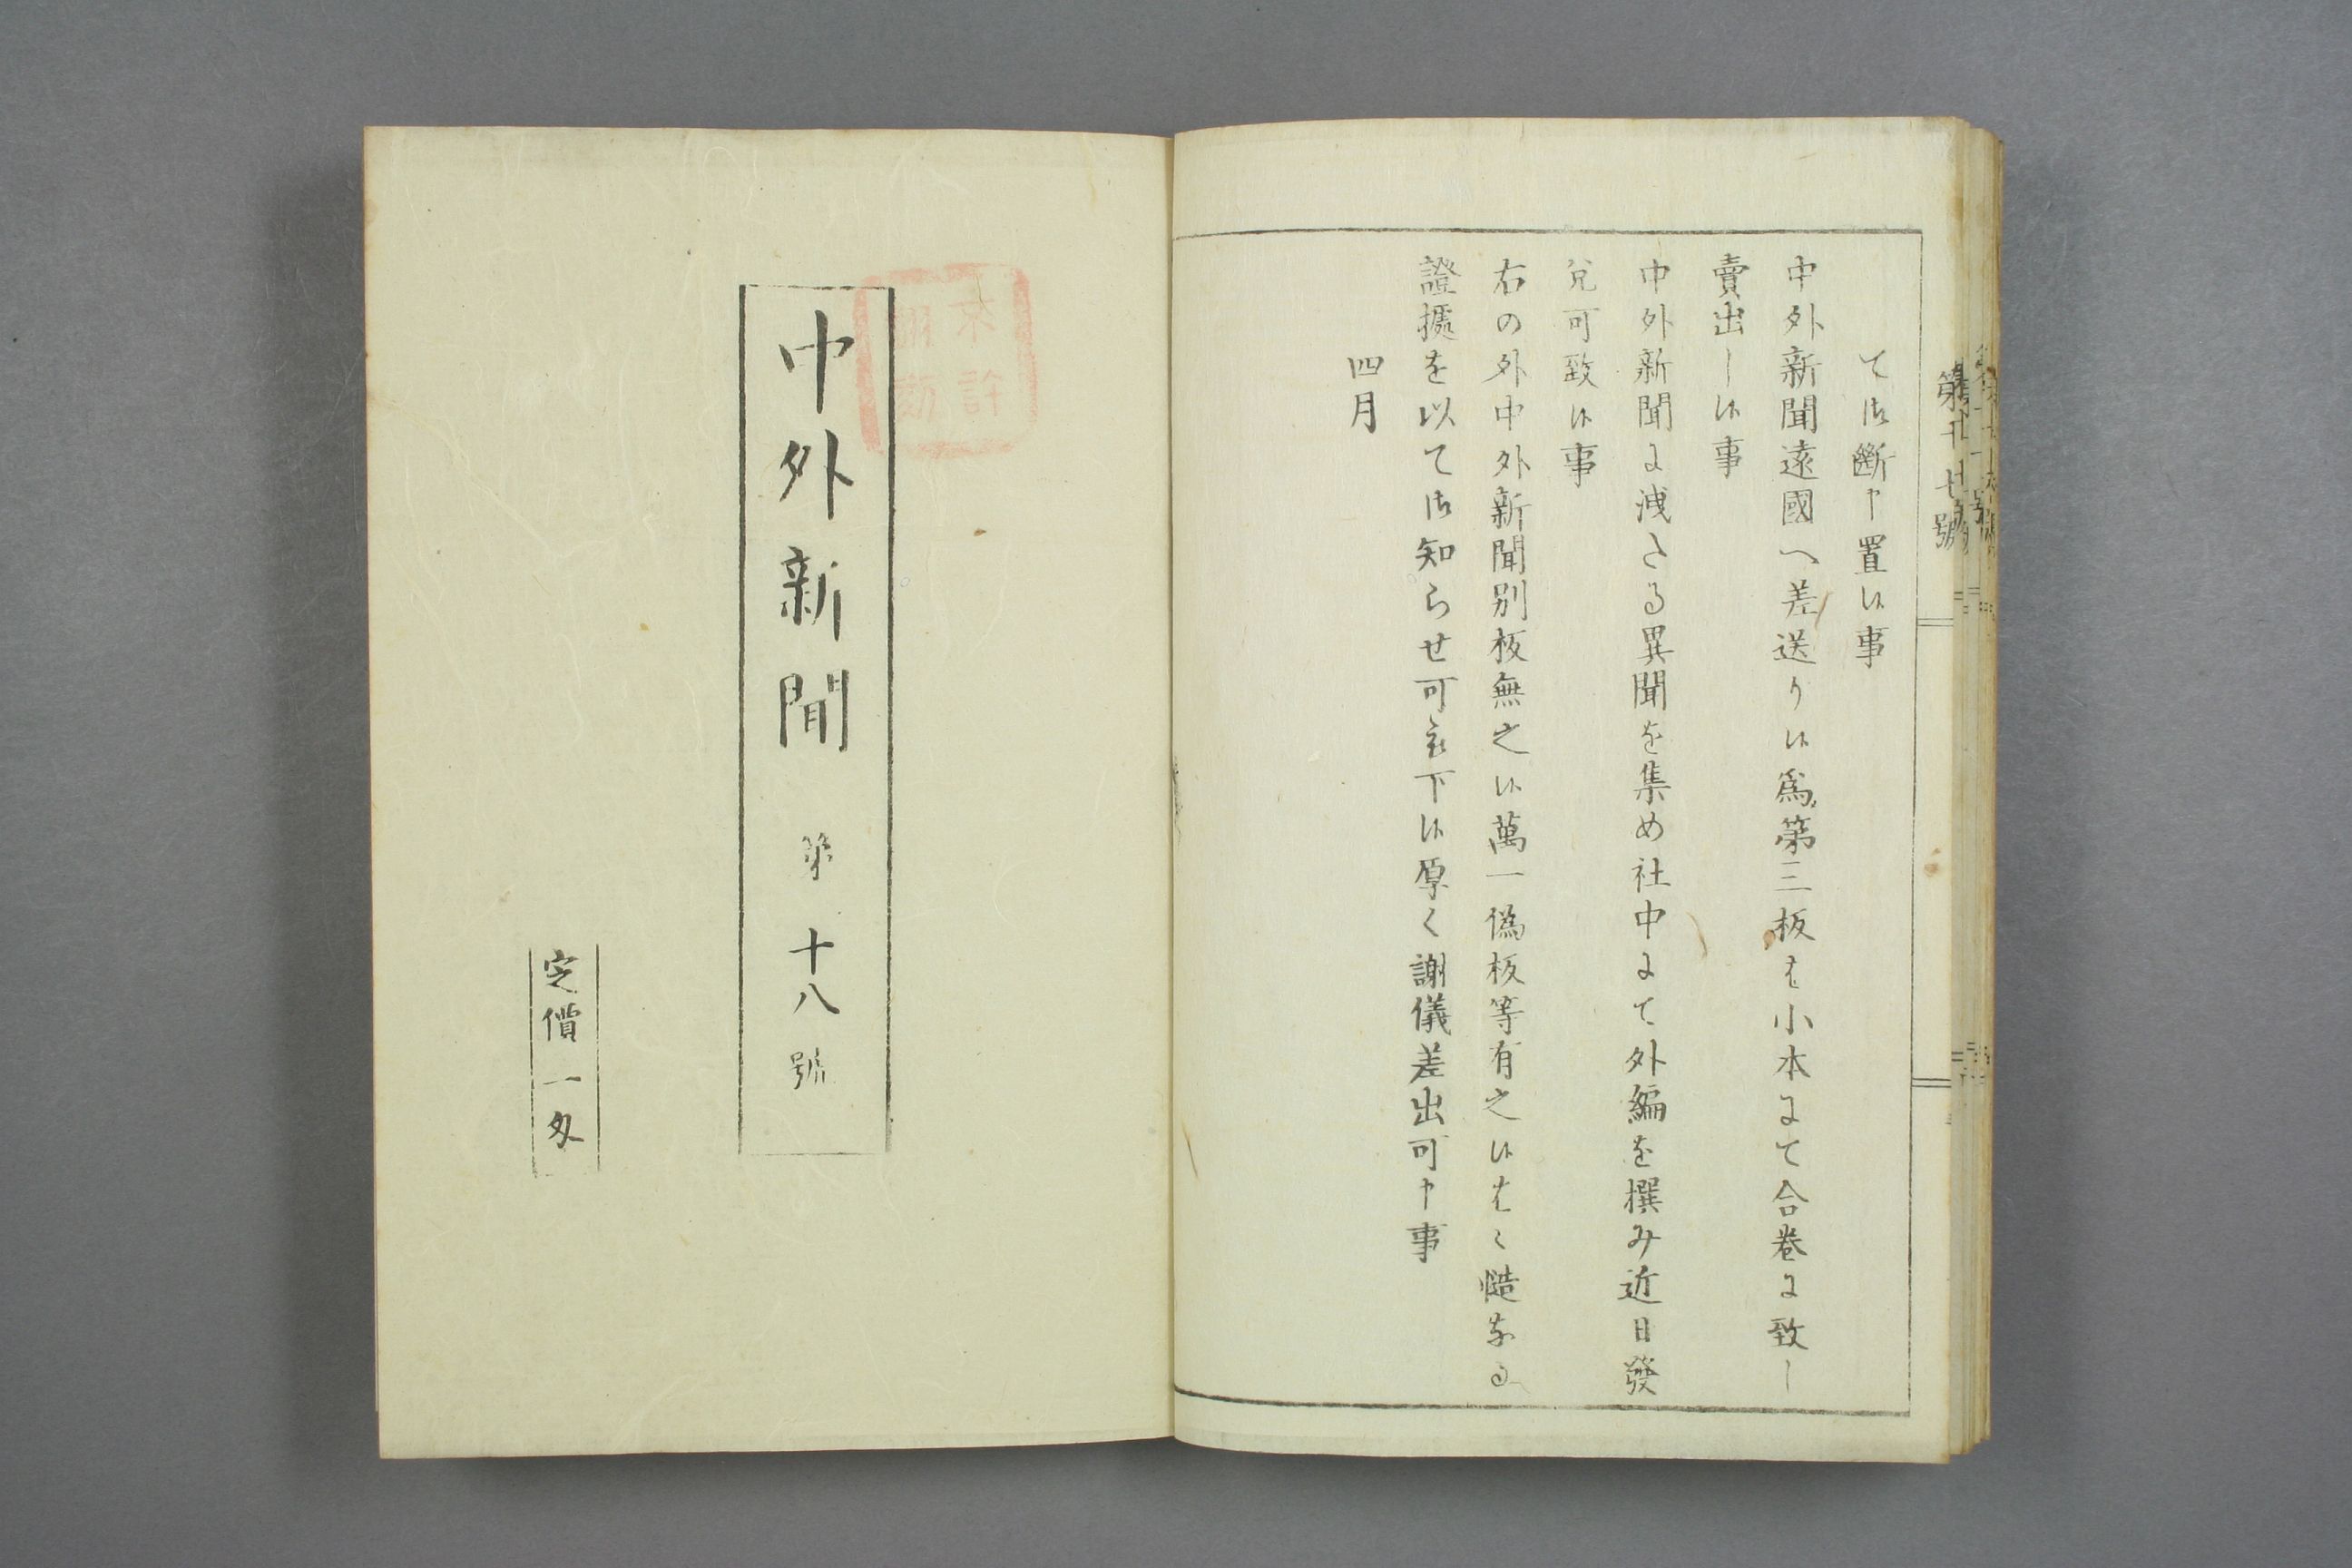 て御斷申置候事
中外新聞遠國へ差送り候爲第三板は小本にて合巻に致し
賣出し候事
中外新聞に洩たる異聞を集め社中にて外編を撰み近日發
兌可致候事
右の外中外新聞別板無之候萬一偽板等有之候はゝ慥なる
證據を以て御知らせ可被下候厚く謝儀差出可申事
四月
中外新聞 第十八號
定價一匁